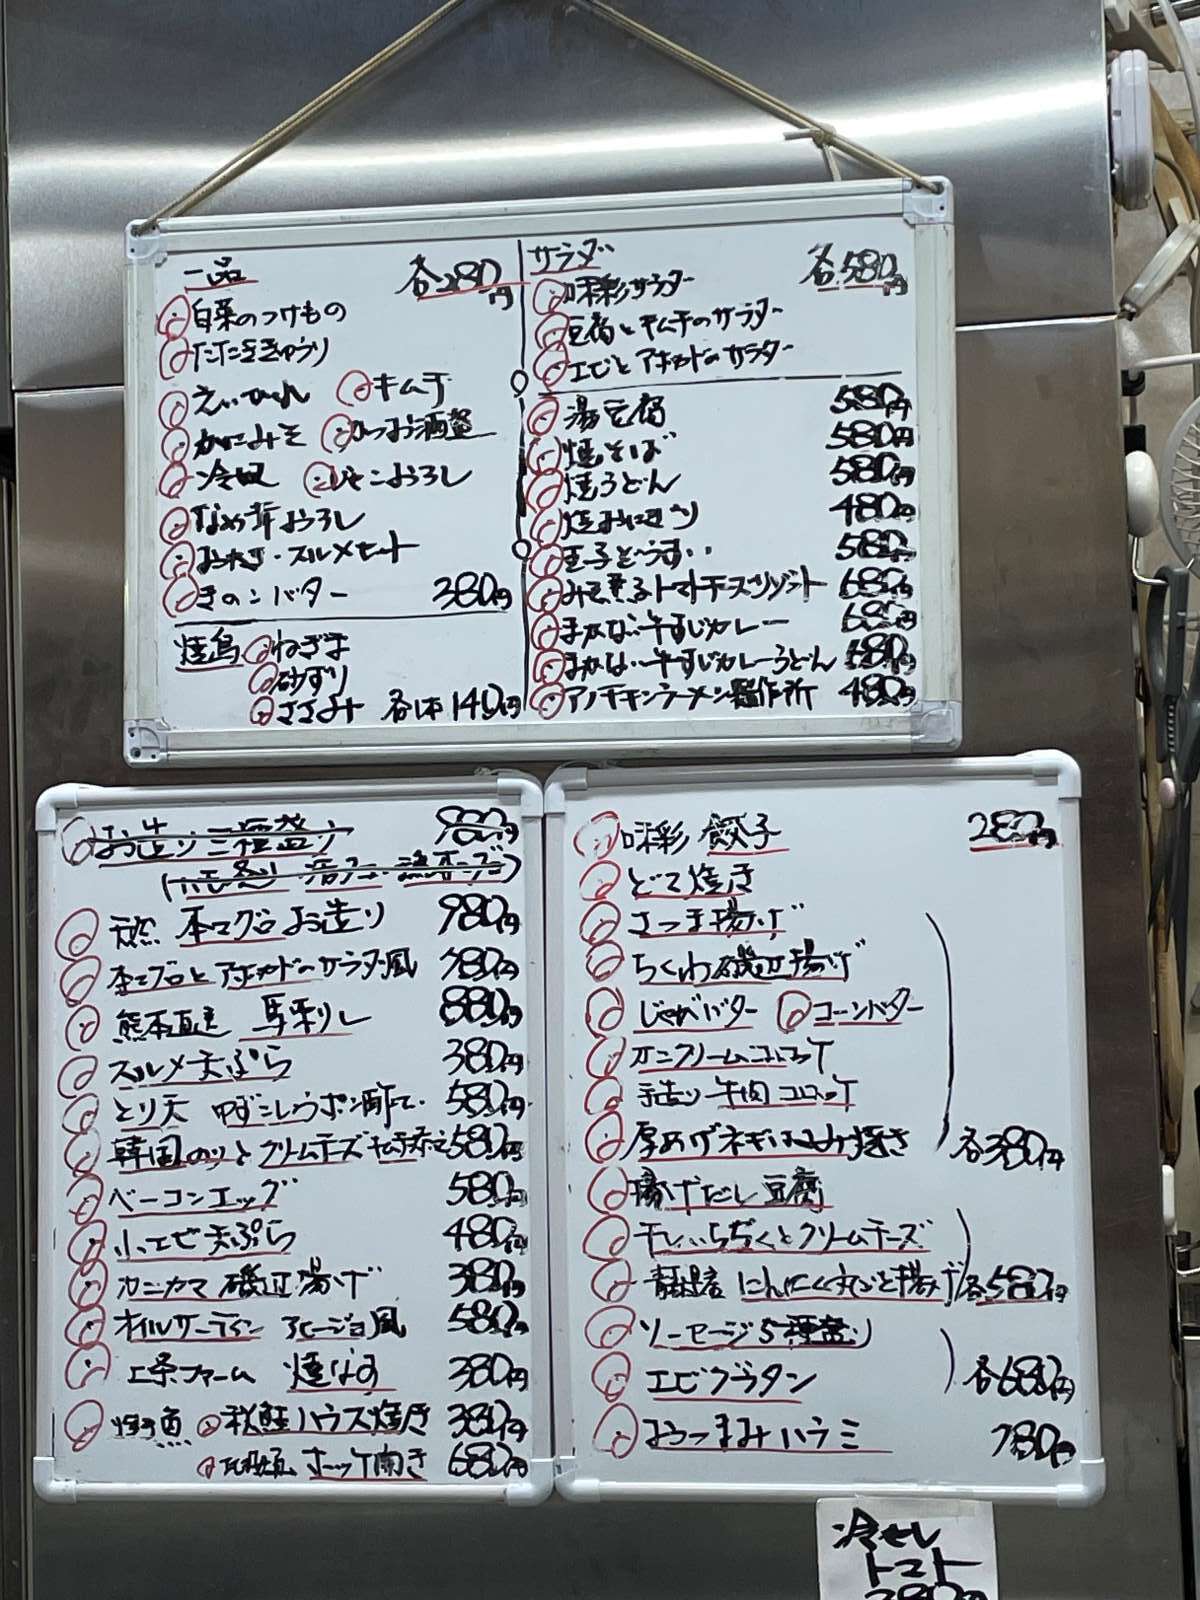 一品 各280円
白菜のつけもの
たたききゅうり
えいひれ キムチ
かにみそ かつお酒盗
冷奴 じゃこおろし
なめ茸おろし
スルメセット
きのこバター 380円
焼鳥 ねぎま
砂ずり
ささみ 各1本 140円
サラダ 各580円
味彩サラダ
豆腐とキムチのサラダ
エビとアボカドのサラダ
湯豆腐 580円
焼そば 580円
焼うどん 580円
焼おにぎり 480円
玉子ぞうすい 580円
トマトチーズリゾット 680円
まかない牛すじカレー 680円
まかない牛すじカレーうどん 680円
アノチキンラーメン製作所 480円
お造り三種盛り
天然 本マグロお造り 980円
本マグロとアボカドのサラダ風 780円
熊本直送 馬刺し 880円
スルメ天ぷら 380円
とり天 ゆずこしょうポン酢で 580円
韓国のりとクリームチーズ 580円
ベーコンエッグ 580円
小エビ天ぷら 480円
カニカマ磯辺揚げ 380円
オイルサーディン アヒージョ風 580円
上条ファーム 焼なす 380円
焼魚 秋鮭ハラス焼き 380円
ホッケ開き 680円
味彩 餃子 280円
どて焼き
さつま揚げ
ちくわ磯辺揚げ
じゃがバター コーンバター
カニクリームコロッケ
手造り牛肉コロッケ
厚あげネギはさみ焼き 各380円
揚げだし豆腐
干しいちぢくとクリームチーズ
青森産 にんにく丸ごと揚げ 各580円
ソーセージ5種盛り
エビグラタン 各680円
おつまみハラミ 780円
冷やし
トマト